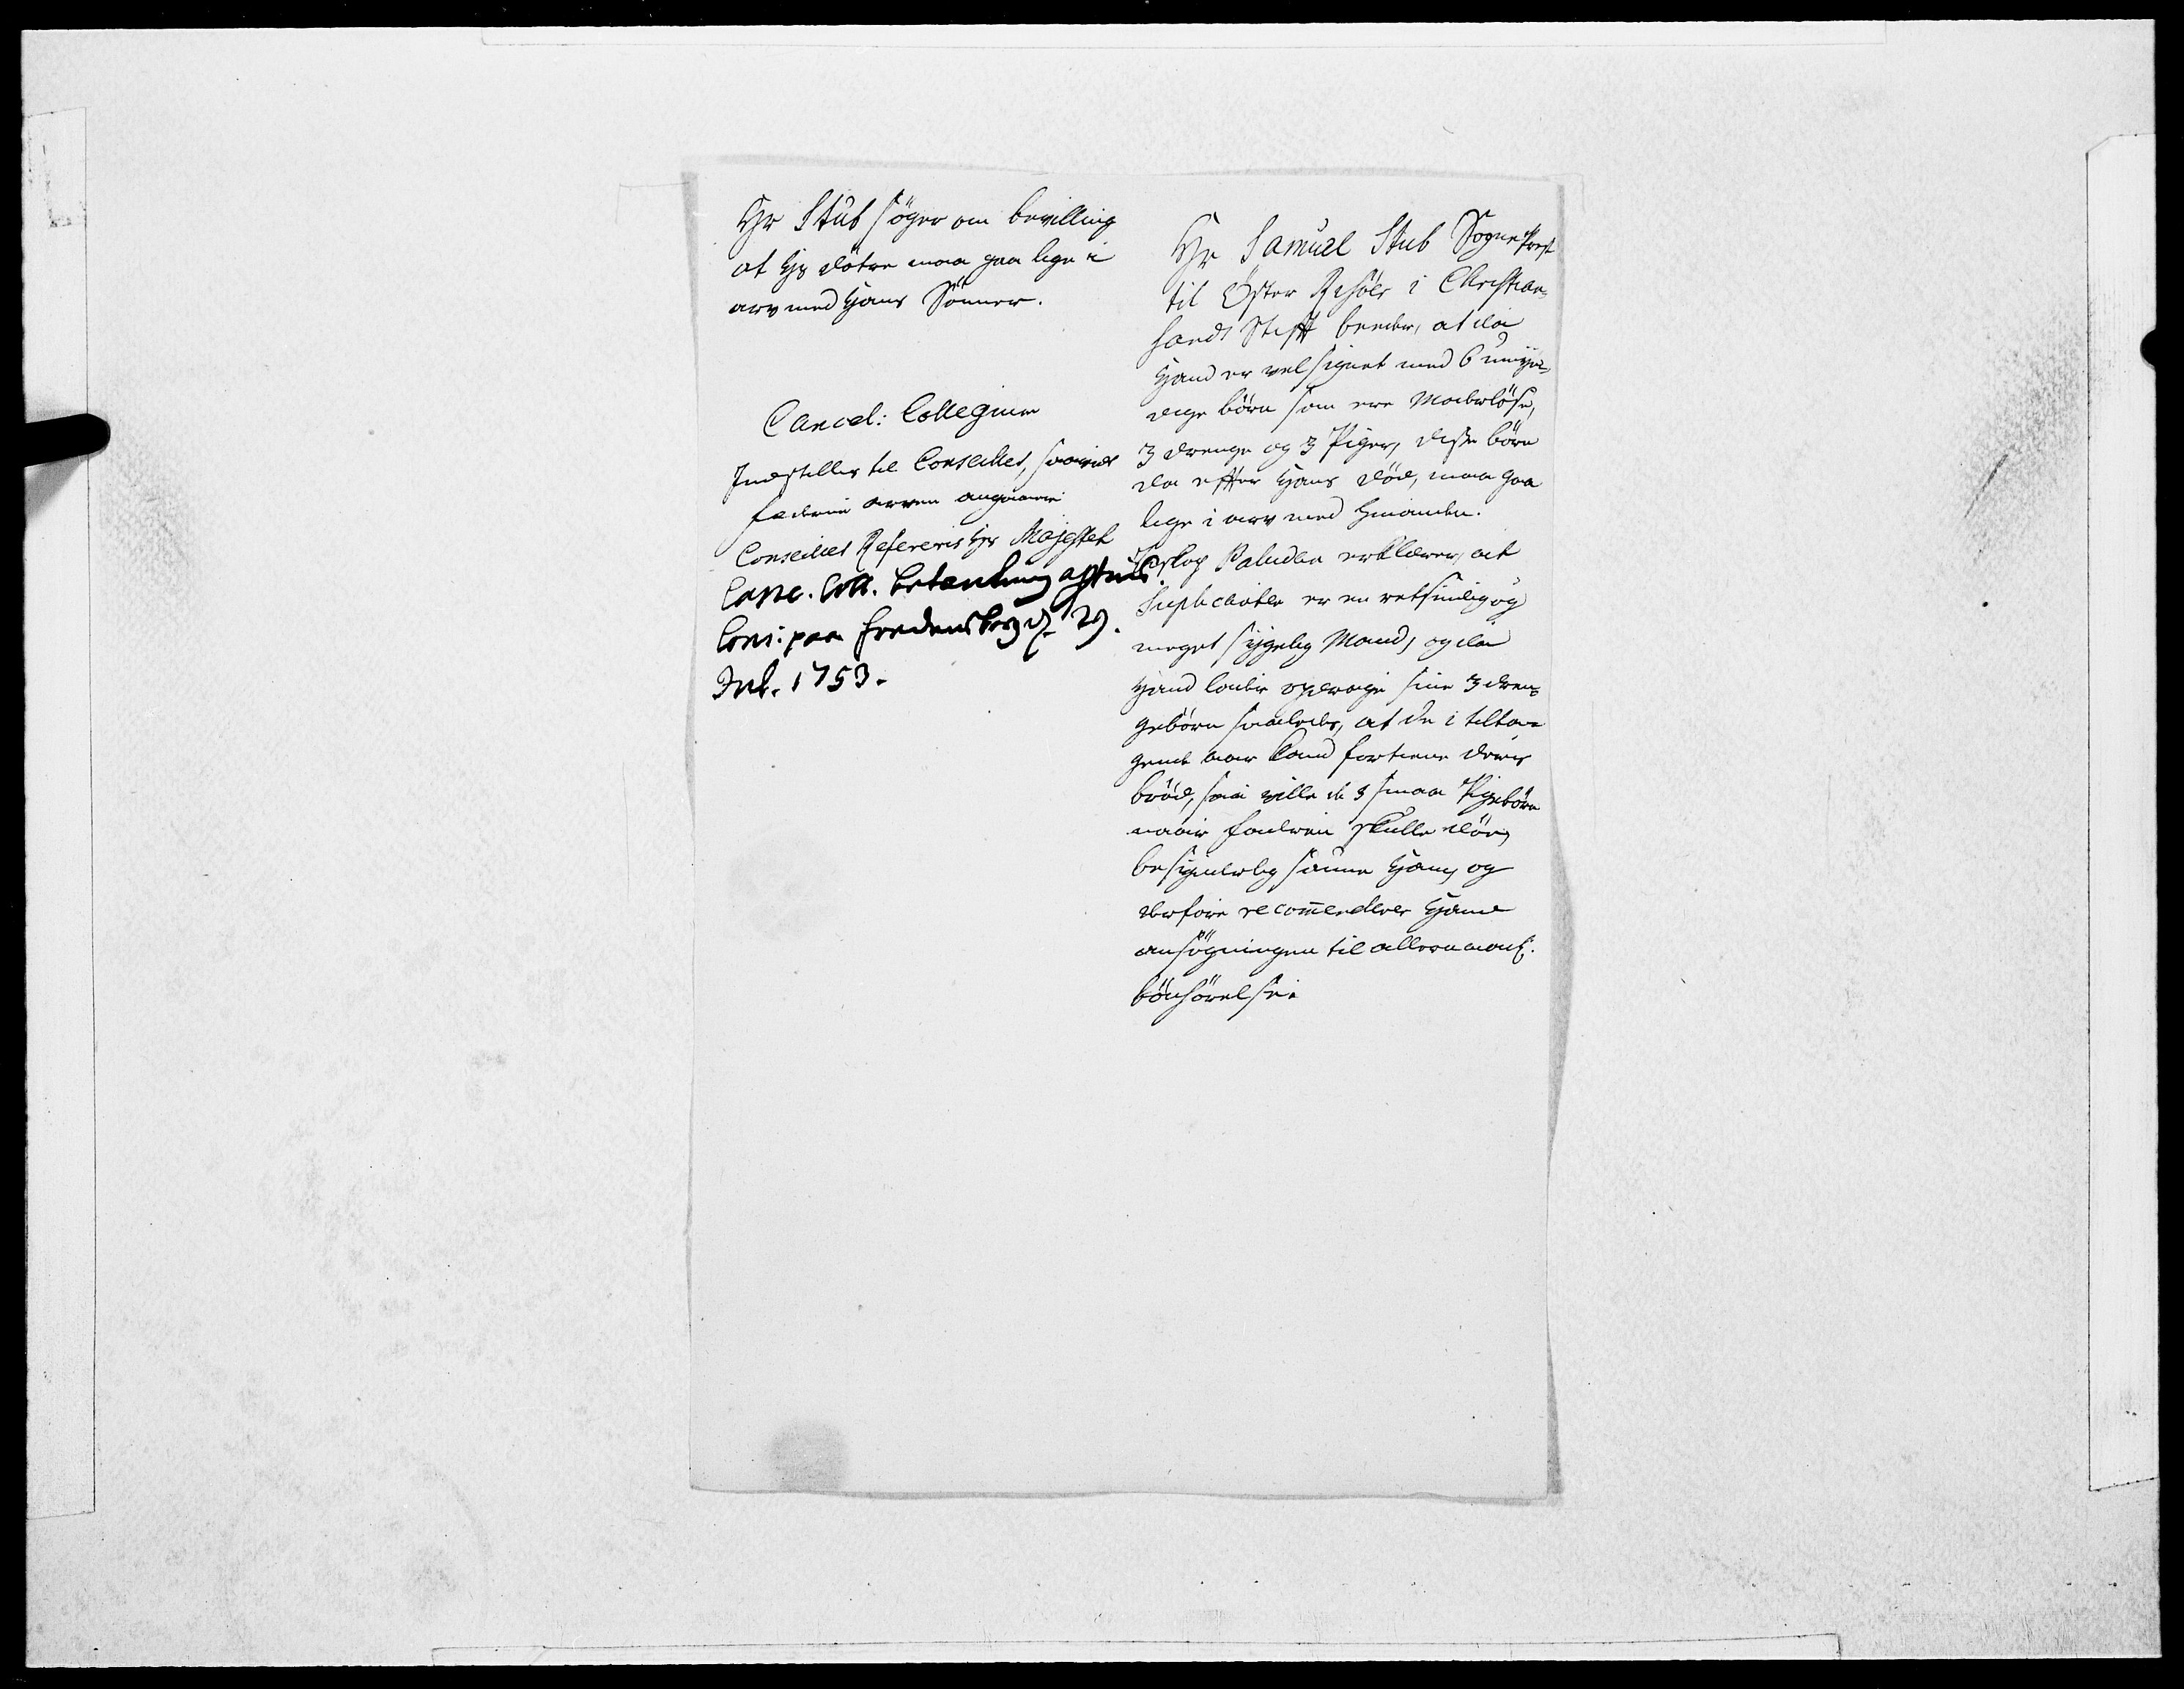 Hr Stub söger om bevilling
at hs döttre maa gaa lige i
arv med hans Sönner.
Cancel: Collegium
Indstilles til Conseillet, saavidt
fædrene arven angaaer
Conseillet Refereris hs Majestet
Canc. Coll. betenkning
Cons: paa Fredensborg d. 29.
Jul. 1753.
Hr Samuel Stub Sogne Prest
til Öster Riisöer i Christian-
sands Stift beeder, at da
Hand er velsignet med 6 umyn-
dige börn som ere Moderlöse,
3 drenge og 3 Piger, disse börn
da efter Hans död, maa gaa
lige i arv med hinanden.
Biskop Paludan erklærer, at
Supplicanten er en retsindig og
meget sygelig Mand, og da
Hand lader opdrage sine 3 dren-
gebörn saaledes, at de i tilta-
gende aar kand fortiene deres
bröd, saa ville de 3 smaa Pigebörn
naar Faderen skulle döe,
besynderlig savne Ham, og
derfore recommenderer Hand
ansögningen til allernaadt.
bönhörelse.